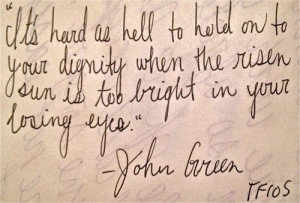 "It's hard as hell to hold on to
your dignity when the risen
sun is too bright in your
losing eyes."
-John Green
TFIOS